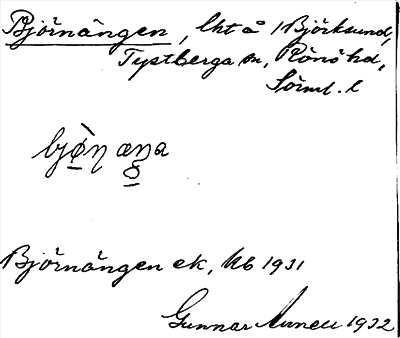 Björnängen, lht å /Björksund,
Tystberga sn, Rönö hd,
Sörml. l
Björnängen ek, kb 1931
Gunnar 1932